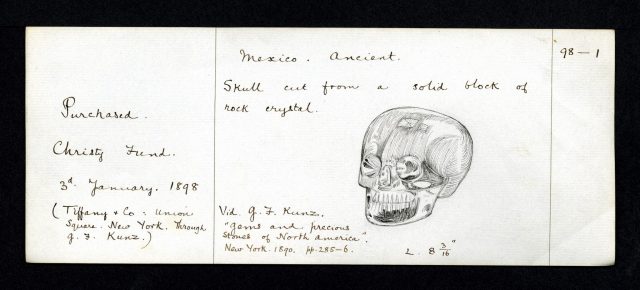 Purchased.
Christy Fund.
3d. January. 1898
(Tiffany & Co: Union
Square. New York. Through
G. F. Kunz.)
Mexico. Ancient.
Skull cut from a solid block of
rock crystal.
Vid. G. F. Kunz.
"Gems and precious
Stones of North America".
New York. 1890. pp. 285-6.
L. 8 3/16"
98-1